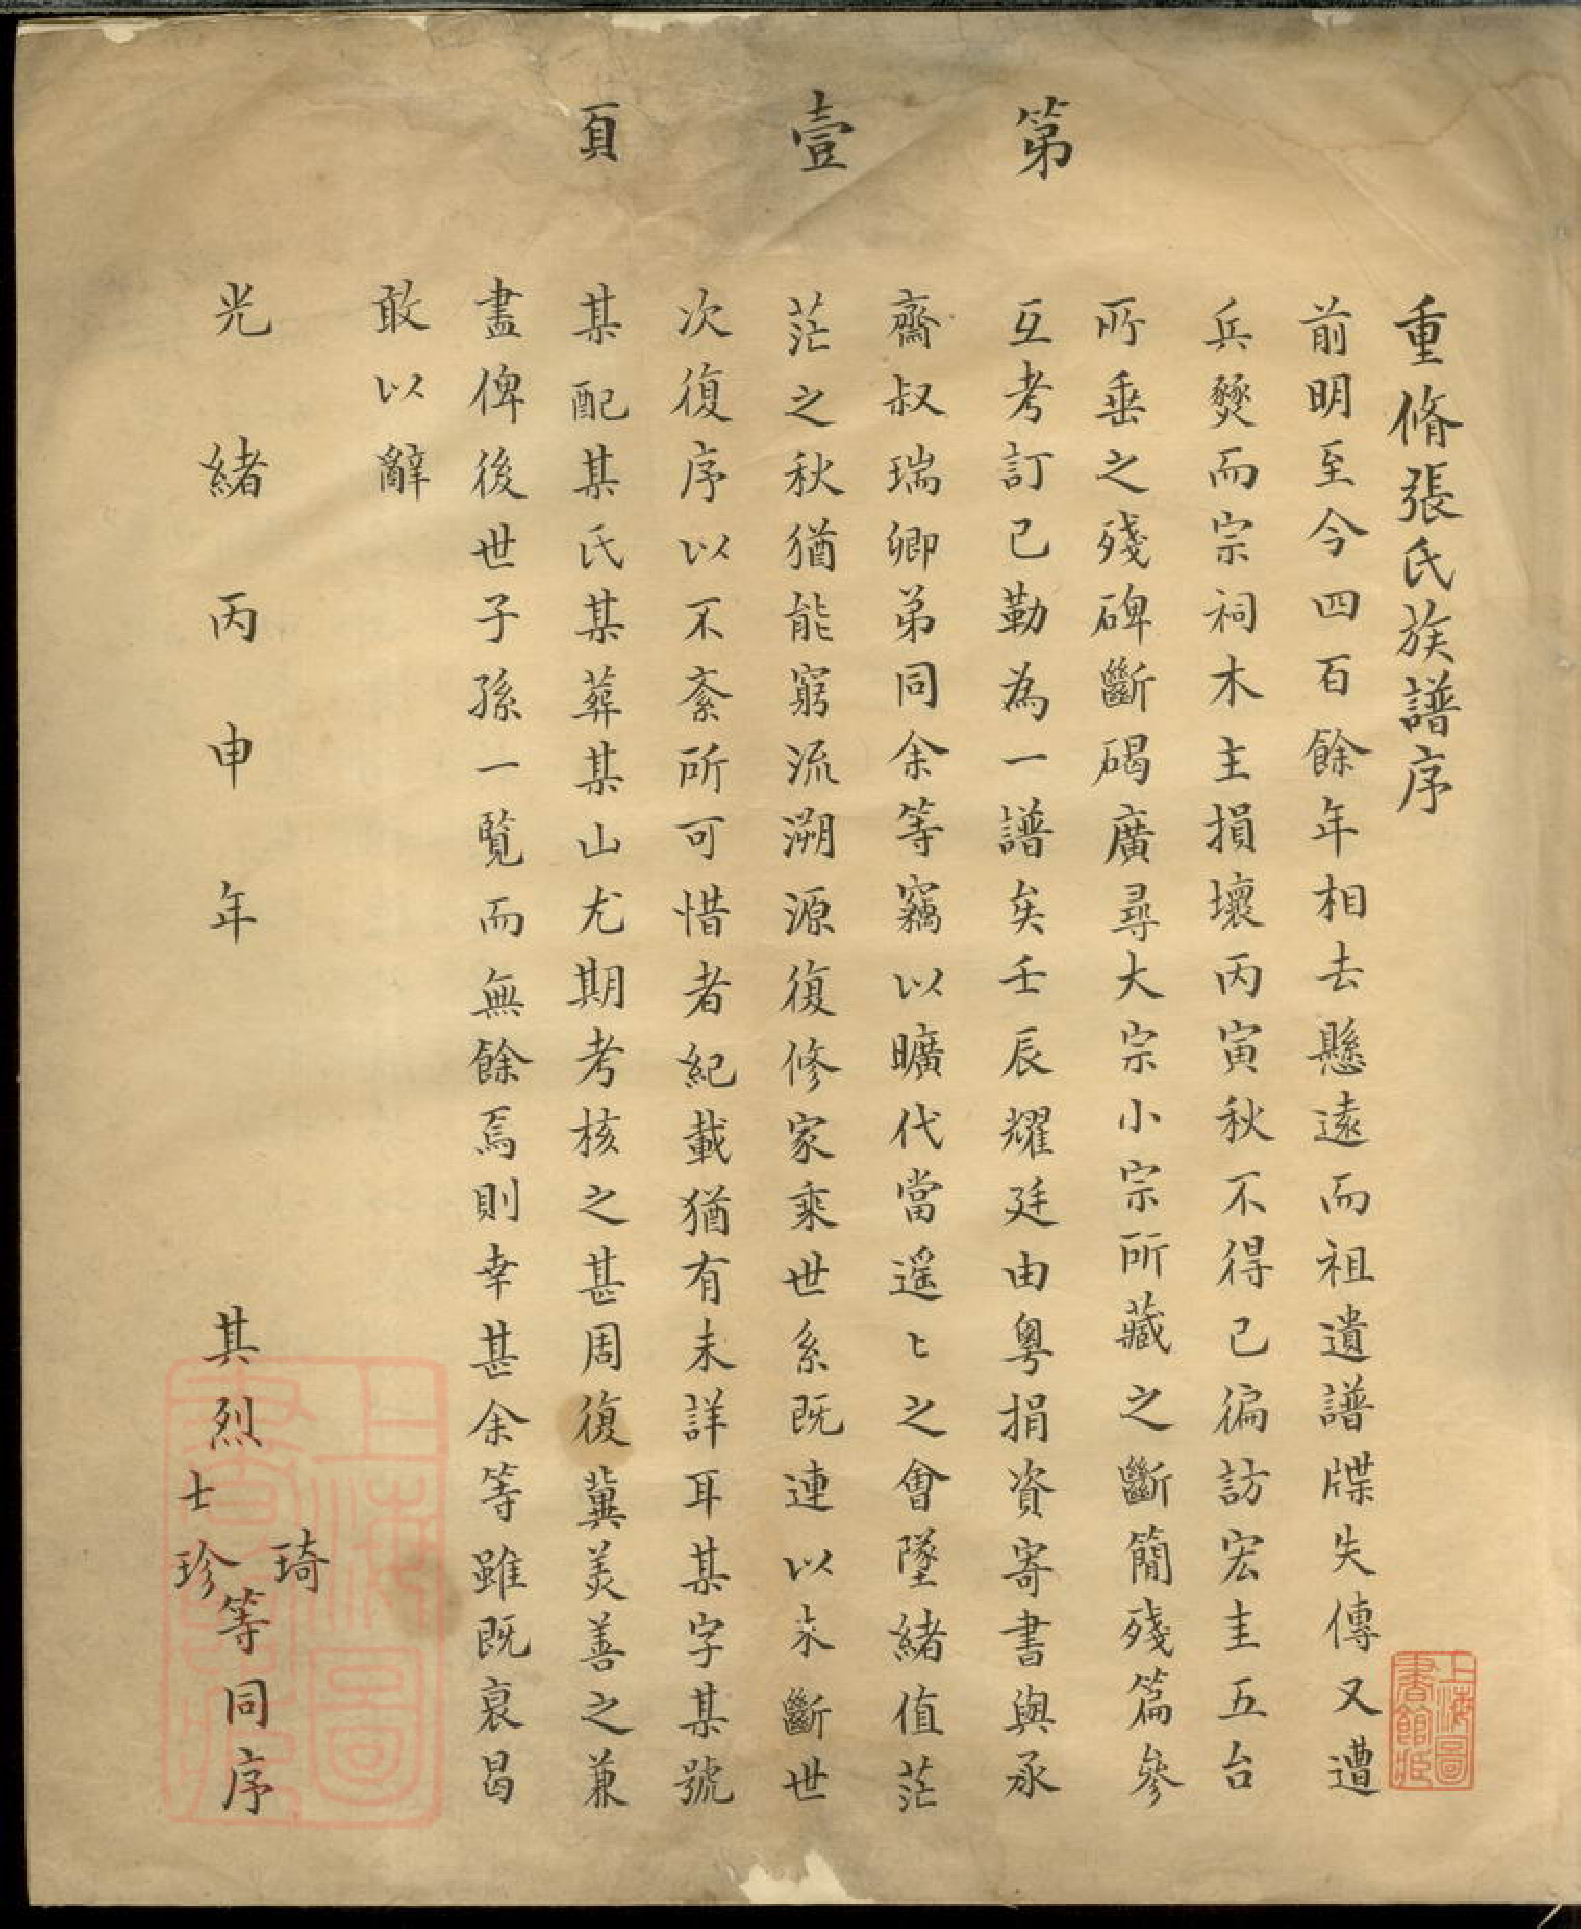 第壹頁
重脩張氏族譜序
前明至今四百餘年相去懸遠而祖遺譜牒失傳又遭
兵燹而宗祠木主損壞丙寅秋不得已徧訪宏圭五台
所垂之殘碑斷碣廣尋大宗小宗所藏之斷簡殘篇參
互考訂已勒為一譜矣壬辰耀廷由粵捐資寄書與承
齋叔瑞卿弟同余等竊以曠代當遥〻之會墜緒值茫
茫之秋猶能窮流溯源復修家乘世系既連以未斷世
次復序以不紊所可惜者紀載猶有未詳耳某字某號
某配某氏某葬某山尤期考核之甚周復冀美善之兼
盡俾後世子孫一覽而無餘焉則幸甚余等雖既衰曷
敢以辭
光緒丙申年
其烈
士
琦
珍
等同序
上海圖書館藏
上海圖書館藏